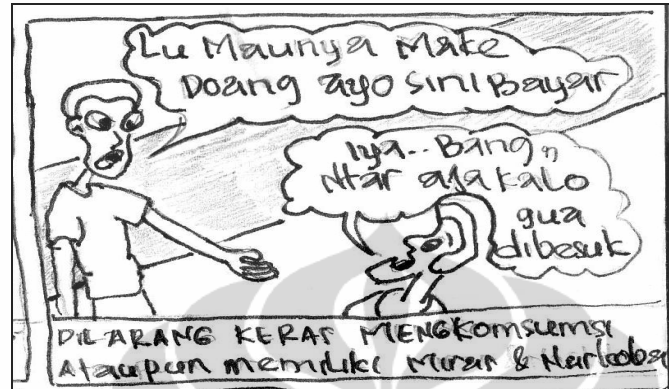 Lu Maunya Make
Doang ayo sini Bayar
Iya.. Bang
Ntar aja kalo
gua
dibesuk
DILARANG KERAS MENGKOMSUMSI
Ataupun memiliki Miras & Narkoba